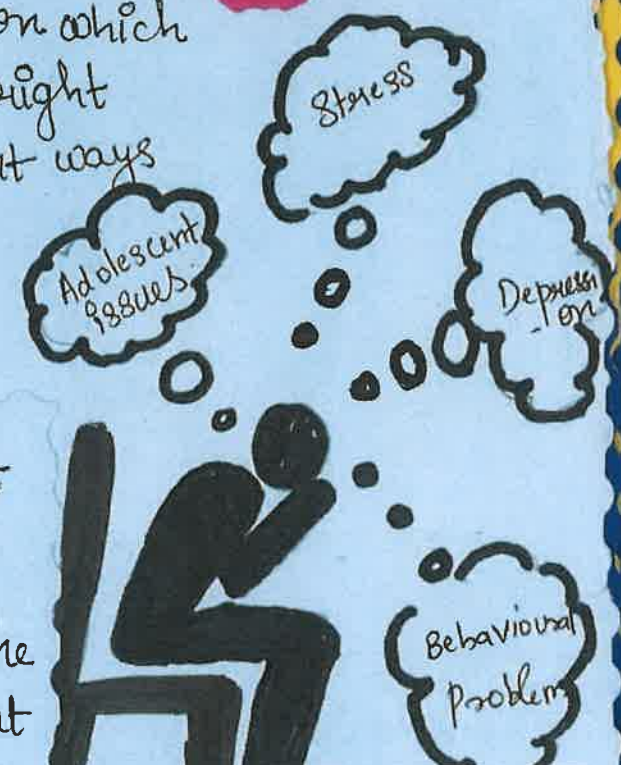 on which
right
ways
Stress
Adolescent
issues.
Depressi
on
Behavioural
Problem